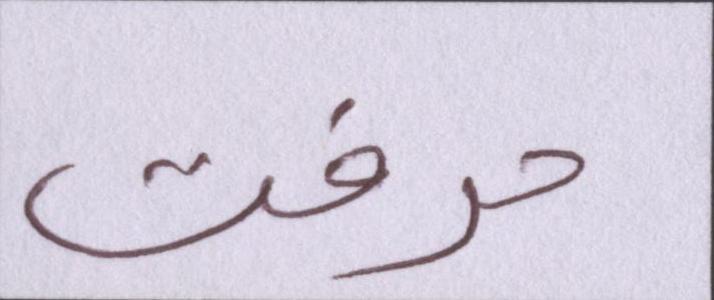 حرفت